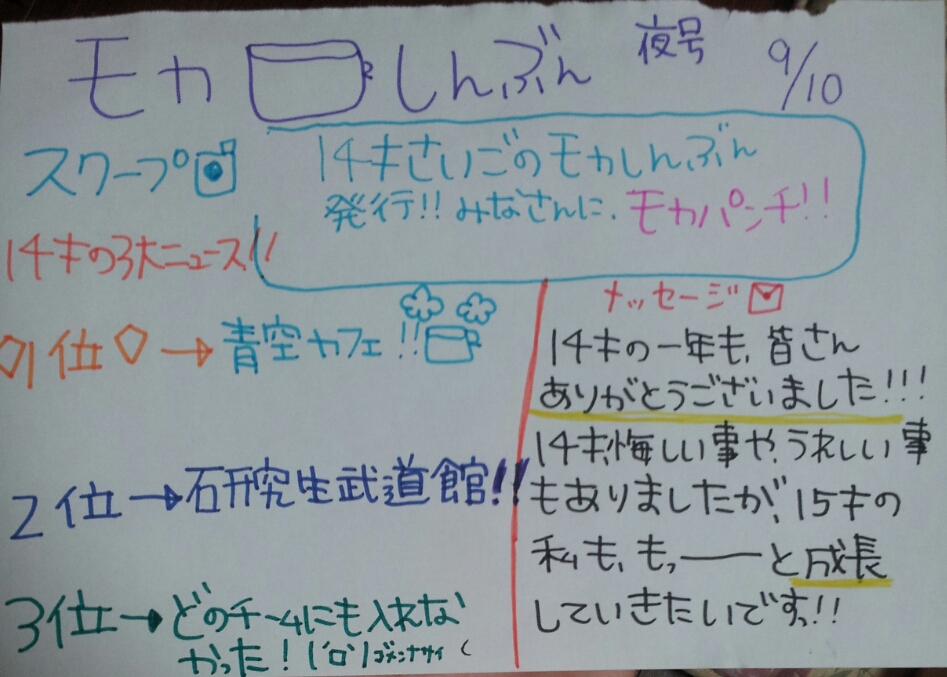 モカしんぶん 夜号 9/10
スクープ
14才さいごのモカしんぶん
発行!! みなさんに、モカパンチ!!
14才の3大ニュース!!
1位→青空カフェ!!
2位→研究生武道館!!
3位→どのチームにも入れな
かった! ('ロ') ゴメンナサイ
メッセージ
14才の一年も、皆さん
ありがとうございました!!!
14才、悔しい事や、うれしい事
もありましたが、15才の
私も、もっ――と成長
していきたいですっ!!